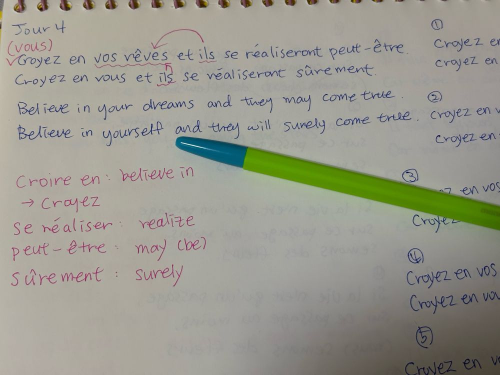 Jour 4
(vous)
Croyez en vos rêves et ils se réaliseront peut-être.
Croyez en vous et ils se réaliseront sûrement.
Believe in your dreams and they may come true.
Believe in yourself and they will surely come true.
Croire en : believe in
→ Croyez
se réaliser : realize
peut-être : may (be)
sûrement : surely
①
Croyez en
croyez en
②
Croyez en vo
Croyez en
③
Croyez en vos
Croyez
④
Croyez en vos
Croyez en vou
⑤
Croyez en v